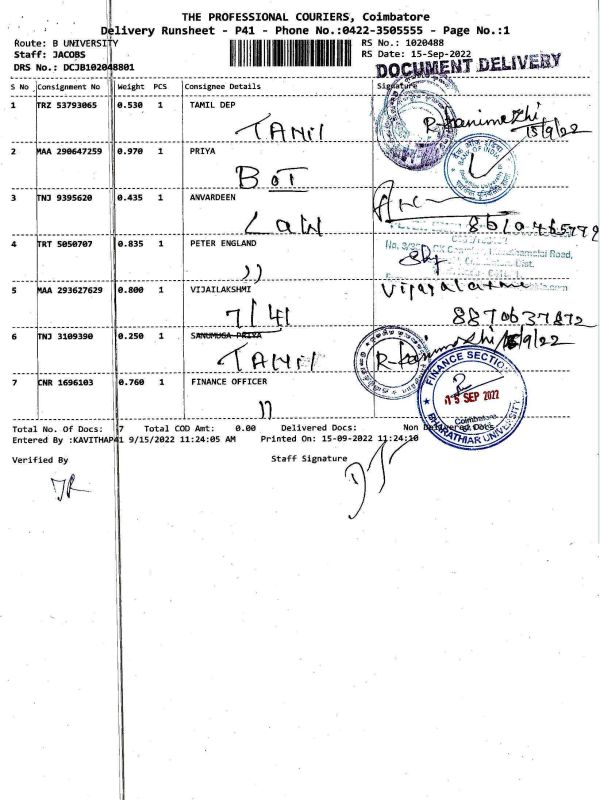 THE PROFESSIONAL COURIERS, Coimbatore
Delivery Runsheet - P41 - Phone No.:0422-3505555 - Page No.:1
Route: B UNIVERSITY RS No.: 1020488
Staff: JACOBS RS Date: 15-Sep-2022
DRS No.: DCJB102048801 DOCUMENT DELIVERY
S No Consignment No Weight PCS Consignee Details Signature
1 TRZ 53793065 0.530 1 TAMIL DEP
TAMIL 15/9/22
2 MAA 290647259 0.970 1 PRIYA
BOT
3 TNJ 9395620 0.435 1 ANVARDEEN
LAW 8610465792
4 TRT 5050707 0.835 1 PETER ENGLAND
))
5 MAA 293627629 0.800 1 VIJAILAKSHMI Vijayalaxmi
7/41 8870637872
6 TNJ 3109390 0.250 1 SANUMUGA PRIYA
TAMIL 15/9/22
7 CNR 1696103 0.760 1 FINANCE OFFICER
))
FINANCE SECTION
15 SEP 2022
Coimbatore
BHARATHIAR UNIVERSITY
Total No. Of Docs: 7 Total COD Amt: 0.00 Delivered Docs: Non Delivered Docs
Entered By :KAVITHAP41 9/15/2022 11:24:05 AM Printed On: 15-09-2022 11:24:10
Verified By Staff Signature